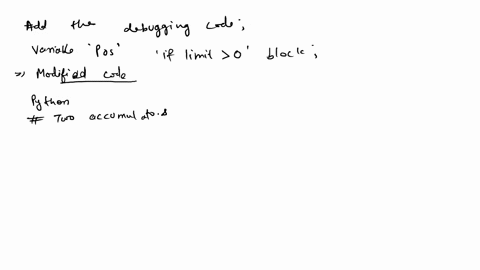 Add the debugging code;
Variable 'Pos' 'if limit > 0' block;
=> Modified code
Python
# Two accumulators